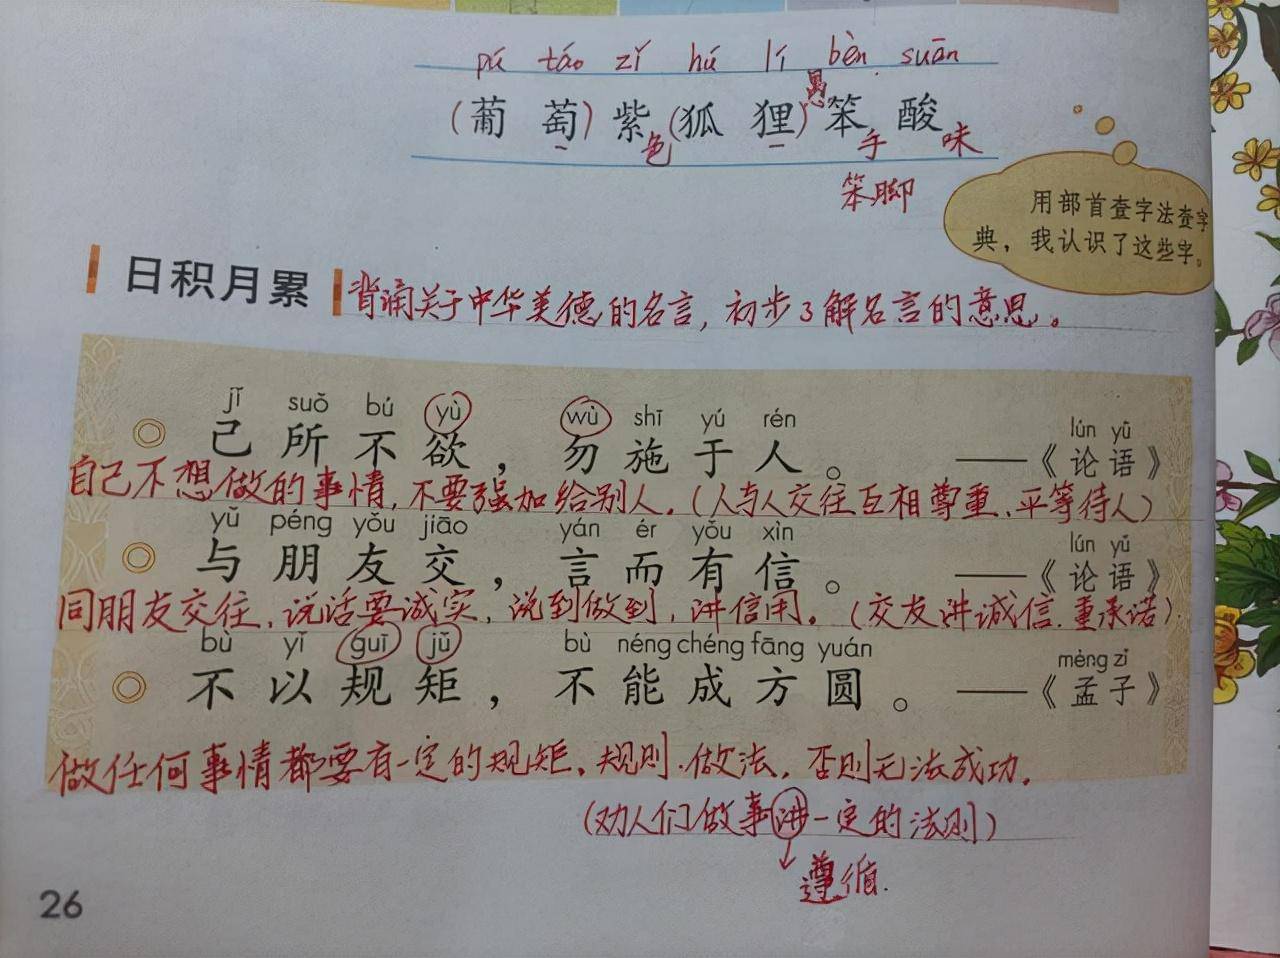 pú táo zǐ hú lí bèn suān
(葡萄)紫(狐狸)笨酸
愚
色 手 味
笨脚
用部首查字法查字
典，我认识了这些字。
日积月累 背诵关于中华美德的名言，初步了解名言的意思。
jǐ suǒ bú yù wù shī yú rén lún yǔ
◎ 己所不欲，勿施于人。 ——《论语》
自己不想做的事情，不要强加给别人。(人与人交往互相尊重、平等待人)
yǔ péng yǒu jiāo yán ér yǒu xìn lún yǔ
◎ 与朋友交，言而有信。 ——《论语》
同朋友交往，说话要诚实，说到做到，讲信用。(交友讲诚信.重承诺).
bù yǐ guī jǔ bù néng chéng fāng yuán mèng zǐ
◎ 不以规矩，不能成方圆。 ——《孟子》
做任何事情都要有一定的规矩、规则、做法，否则无法成功。
(劝人们做事讲一定的法则)
↓
遵循.
26